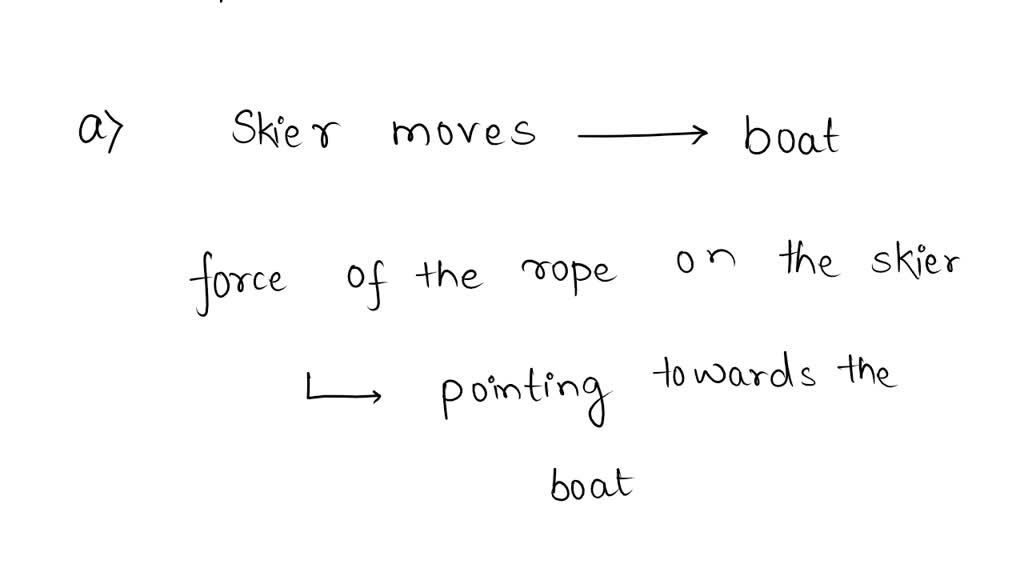 a) Skier moves → boat
force of the rope on the skier
↳ pointing towards the
boat